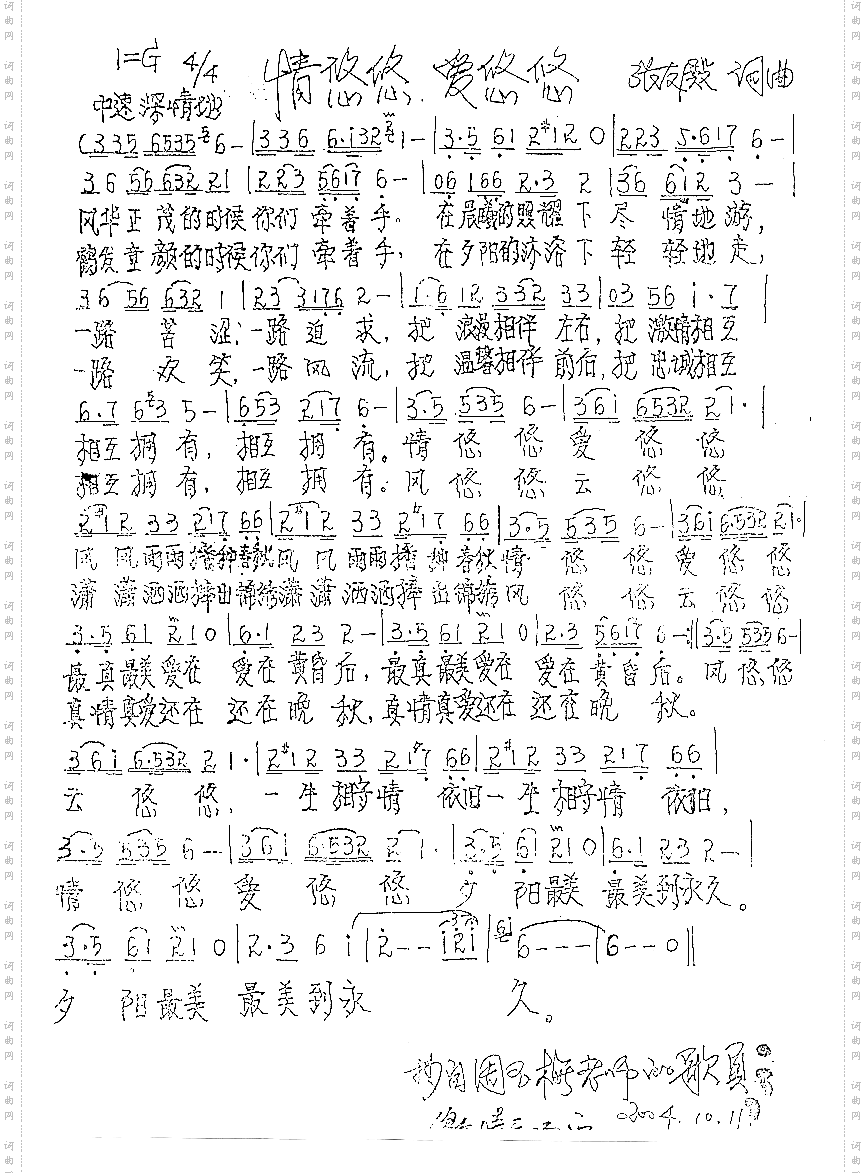 1=G 4/4 情悠悠 爱悠悠 张友殿 词曲
中速 深情地
(335 6535 6-|336 6·i32 1-|3·5 61 2#12 0|223 5·617 6-|
36 56 632 21|223 5617 6-|06 166 2·3 2|36 612 3-|
风华正茂的时候你们 牵着手。 在晨曦的照耀下 尽情地游,
鹤发童颜的时候你们 牵着手, 在夕阳的沐浴下 轻轻地走,
36 56 632 1|23 3176 2-|1·6 12 332 33|03 56 i·7|
一路苦涩,一路追求,把浪漫相伴左右,把激情相互
一路欢笑,一路风流,把温馨相伴前后,把忠诚相互
6·7 653 5-|653 217 6-|3·5 535 6-|36i 6532 21·|
相互拥有,相互拥有。情悠悠爱悠悠
相互拥有,相互拥有。风悠悠云悠悠
2#12 33 217 66|2#12 33 217 66|3·5 535 6-|36i 6·532 21·|
风风雨雨播种春秋风风雨雨播种春秋情悠悠爱悠悠
潇潇洒洒捧出锦绣潇潇洒洒捧出锦绣风悠悠云悠悠
3·5 61 210|6·1 23 2-|3·5 61 21 0|2·3 5617 6-:||3·5 535 6-|
最真最美爱在 爱在黄昏后,最真最美爱在 爱在黄昏后。风悠悠
真情真爱还在 还在晚秋,真情真爱还在 还在晚秋。
36i 6·532 21·|2#12 33 217 66|2#12 33 217 66|
云悠悠,一生相守情依旧一生相守情依旧,
3·5 535 6--|36i 6·532 21·|3·5 61 210|6·1 23 2-|
情悠悠爱悠悠 夕阳最美 最美到永久。
3·5 61 21 0|2·3 6 i|2--i2i|6---|6--0||
夕阳最美 最美到永久。
抄自周玉梅老师的歌页
2004.10.11
词曲网